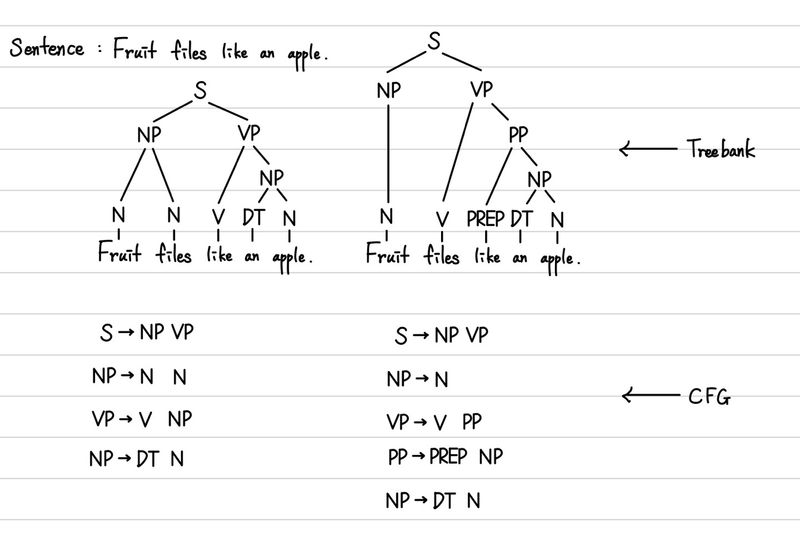 Sentence : Fruit files like an apple.
S
NP VP
NP
N N V DT N
Fruit files like an apple.
S
NP VP
PP
NP
N V PREP DT N
Fruit files like an apple.
← Treebank
S → NP VP
NP → N N
VP → V NP
NP → DT N
S → NP VP
NP → N
VP → V PP
PP → PREP NP
NP → DT N
← CFG